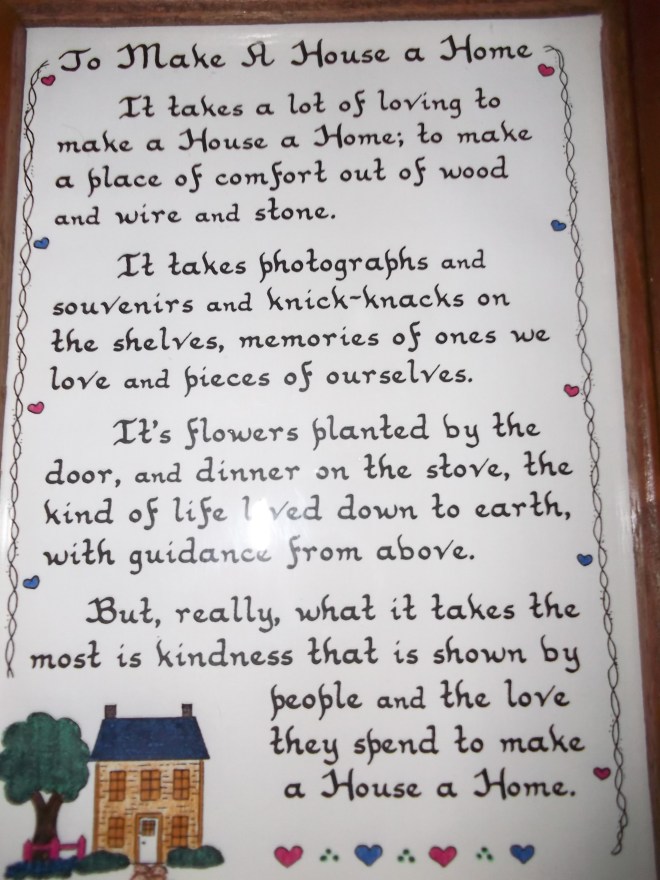 To Make A House a Home
It takes a lot of loving to
make a House a Home; to make
a place of comfort out of wood
and wire and stone.
It takes photographs and
souvenirs and knick-knacks on
the shelves, memories of ones we
love and pieces of ourselves.
It's flowers planted by the
door, and dinner on the stove, the
kind of life lived down to earth,
with guidance from above.
But, really, what it takes the
most is kindness that is shown by
people and the love
they spend to make
a House a Home.